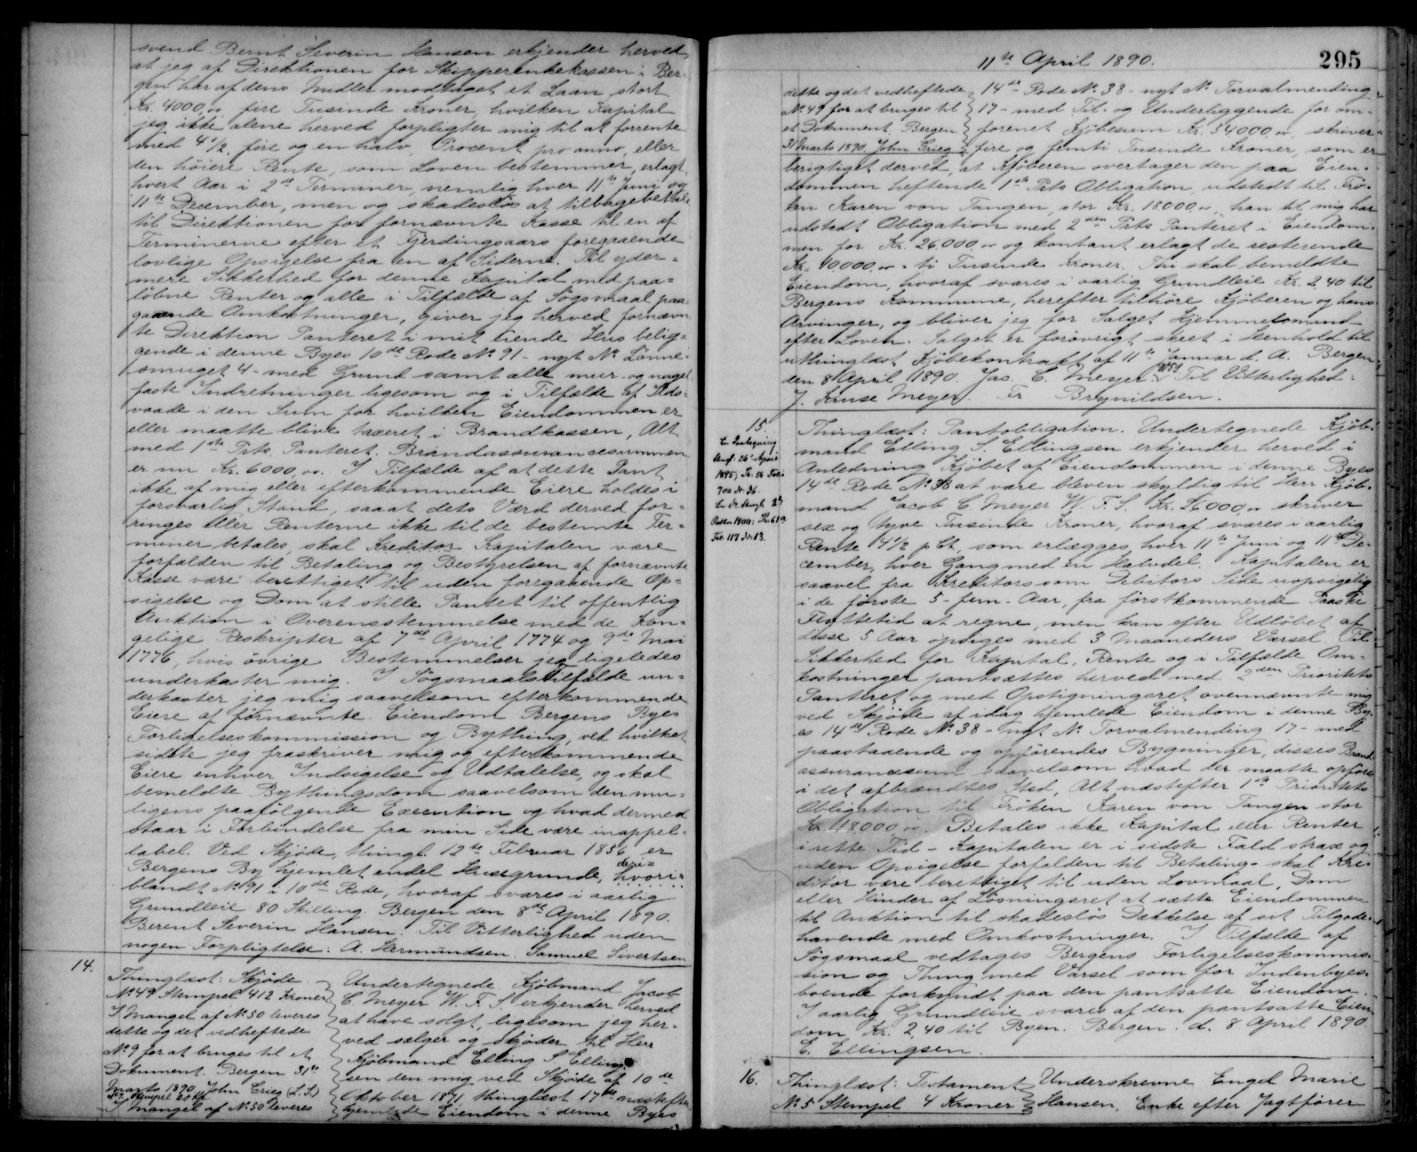 svend Bernt Severin Hansen erkjender herved,
at jeg af Direktionen for Skipperenkekassen i Ber-
gen har af dens Midler modtaget et Laan stort
Kr. 4000,00 fire Tusinde Kroner, hvilken Kapital
jeg ikke alene herved forpligter mig til at forrente
med 4½, fire og en halv, Procent pro anno, eller
den höiere Rente, som Loven bestemmer, erlagt
hvert Aar i 2de Terminer, nemlig hver 11te Juni og
11te December, men og skadeslös at tilbagebetale
til Direktionen for fornævnte Kasse til en af
Terminerne efter et Fjerdingaars foregaaende
lovlige Opsigelse fra en af Siderne. Til yder-
mere Sikkerhed for denne Kapital med paa-
löbne Renter og alle i Tilfælde af Sögsmaal paa-
gaaende Omkostninger, giver jeg herved fornævn-
te Direktion Panteret i mit eiende Hus belig-
gende i denne Byes 10de Rode No 91 - nyt No Lönne-
smuget 4 - med Grund samt alle mur- og nagel-
faste Indretninger ligesom og i Tilfælde af Ilds-
vaade i den Sum for hvilken Eiendommen er
eller maatte blive taxeret i Brandkassen, Alt
med 1ste Prts. Panteret. Brandassurancesummen
er nu Kr. 6000,00. I Tilfælde af at dette Pant
ikke af mig eller efterkommende Eiere holdes i
forsvarlig Stand, saaat dets Værd derved for-
ringes eller Renterne ikke til de bestemte Ter-
miner betales, skal Kreditor Kapitalen være
forfalden til Betaling og Bestyrelsen af fornævnte
Kasse være berettiget til uden foregaaende Op-
sigelse og Dom at stille Pantet til offentlig
Auktion i Overensstemmelse med de Kon-
gelige Reskripter af 7de April 1774 og 9de Mai
1776, hvis övrige Bestemmelser jeg ligeledes
underkaster mig. I Sögsmaalstilfælde un-
derkaster jeg mig saavelsom efterkommende
Eiere af fornævnte Eiendom Bergens Byes
Forligelseskommission og Bything, ved hvilket
sidste jeg fraskriver mig og efterkommende
Eiere enhver Indsigelse og Udtalelse, og skal
bemeldte Bythingsdom saavelsom den mu-
ligens paafölgende Execution og hvad dermed
staar i Forbindelse fra min Side være inappel-
label. Ved Skjöde, thingl. 12te Februar 1856 er
Bergens By hjemlet endel Husegrunde, hvori-
blandt No 91 i 10de Rode, hvoraf svares i aarlig
Grundleie 80 Skilling. Bergen den 8de April 1890.
Berent Severin Hansen. Til Vitterlighed uden
nogen Forpligtelse: A. Hermundsen. Samuel Sivertsen
14.
Thinglæst: Skjöde
No 49 Stempel 412 Kroner
I Mangel af No 50 leveres
dette og det vedheftede
No 9 for at bruges til et
Dokument. Bergen 31te
Marts 1890 John Grieg (L.S.)
I Mangel af No 50 leveres
Undertegnede Kjöbmand Jacob
C. Meyer W. F. S. erkjender herved
at have solgt, ligesom jeg her-
ved sælger og skjöder til Herr
Kjöbmand Elling S Elling-
sen den mig ved Skjöde af 10de
Oktober 1871 thinglæst 17de næstefter
hjemlede Eiendom i denne Byes
11te April 1890.
295
dette og det vedheftede
No 49 for at bruges til
et Dokument. Bergen
31 Marts 1890. John Grieg
14de Rode No 38 - nyt No Torvalmending
17 - med Til- og Underliggende for om-
forenet Kjöbesum Kr. 54000,00, skriver
fire og femti Tusinde Kroner, som er
berigtiget derved, at Kjöberen overtager den paa Eien-
dommen heftende 1ste Prts Obligation, udstedt til Frö-
ken Karen von Tangen stor Kr. 18000,00, han til mig har
udstedt Obligation med 2den Prts Panteret i Eiendom-
men for Kr. 26000,00 og kontant erlagt de resterende
Kr. 10,000,00 - ti Tusinde Kroner. Thi skal bemeldte
Eiendom, hvoraf svares i aarlig Grundleie Kr. 2,40 til
Bergens Kommune, herefter tilhöre Kjöberen og hans
Arvinger, og bliver jeg for Salget Hjemmelsmand
efter Loven. Salget er forövrigt skeet i Henhold til
uthinglæst Kjöbekontrakt af 11te Januar d. A. Bergen
den 8 April 1890. Jac. C. Meyer Til Vitterlighed:
J. Kruse Meyer. Fr Brynildsen.
15.
Thinglæst: Pantobligation. Undertegnede Kjöb-
mand Elling S. Ellingsen erkjender herved i
Anledning Kjöbet af Eiendommen i denne Byes
14de Rode No 38 at være bleven skyldig til Herr Kjöb-
mand Jacob C Meyer W. F. S. Kr. 26000,00 skriver
sex og tyve Tusinde Kroner, hvoraf svares i aarlig
Rente 4½ p Ct., som erlægges hver 11te Juni og 11te De-
cember, hver Gang med en Halvdel. Kapitalen er
saavel fra Kreditors som Debitors Side uopsigelig
i de förste 5 - fem - Aar, fra förstkommende Paaske
Flyttetid at regne, men kan efter Udlöbet af
disse 5 Aar opsiges med 3 Maaneders Varsel. Til
Sikkerhed for Kapital, Rente og i Tilfælde Om-
kostninger pantsættes herved med 2den Prioritets
Panteret og med Opstigningsret ovennævnte mig
ved Skjöde af idag hjemlede Eiendom i denne By-
es 14de Rode No 38 - nyt No Torvalmending 17 - med
paastaaende og opförendes Bygninger, disses Brand-
assurancesum saavelsom hvad der maatte opföres
i det afbrændtes Sted, Alt næstefter 1ste Prioritets
Obligation til Fröken Karen von Tangen stor
Kr. 18000,00. Betales ikke Kapital eller Renter
i rette Tid - Kapitalen er i sidste Fald strax og
uden Opsigelse forfalden til Betaling - skal Kre-
ditor være berettiget til uden Lovmaal, Dom
eller Hinder af Lösningsret at sætte Eiendommen
til Auktion til skadeslös Dækkelse af sit Tilgode-
havende med Omkostninger. I Tilfælde af
Sögsmaal vedtages Bergens Forligelseskommis-
sion og Thing med Varsel som for Indenbyes-
boende forkyndt paa den pantsatte Eiendom.
I aarlig Grundleie svares af den pantsatte Eien-
dom Kr. 2,40 til Byen. Bergen d. 8 April 1890.
E. Ellingsen.
16.
Thinglæst: Testament
No 5 Stempel 4 Kroner
Underskrevne Engel Marie
Hansen, Enke efter Jagtförer